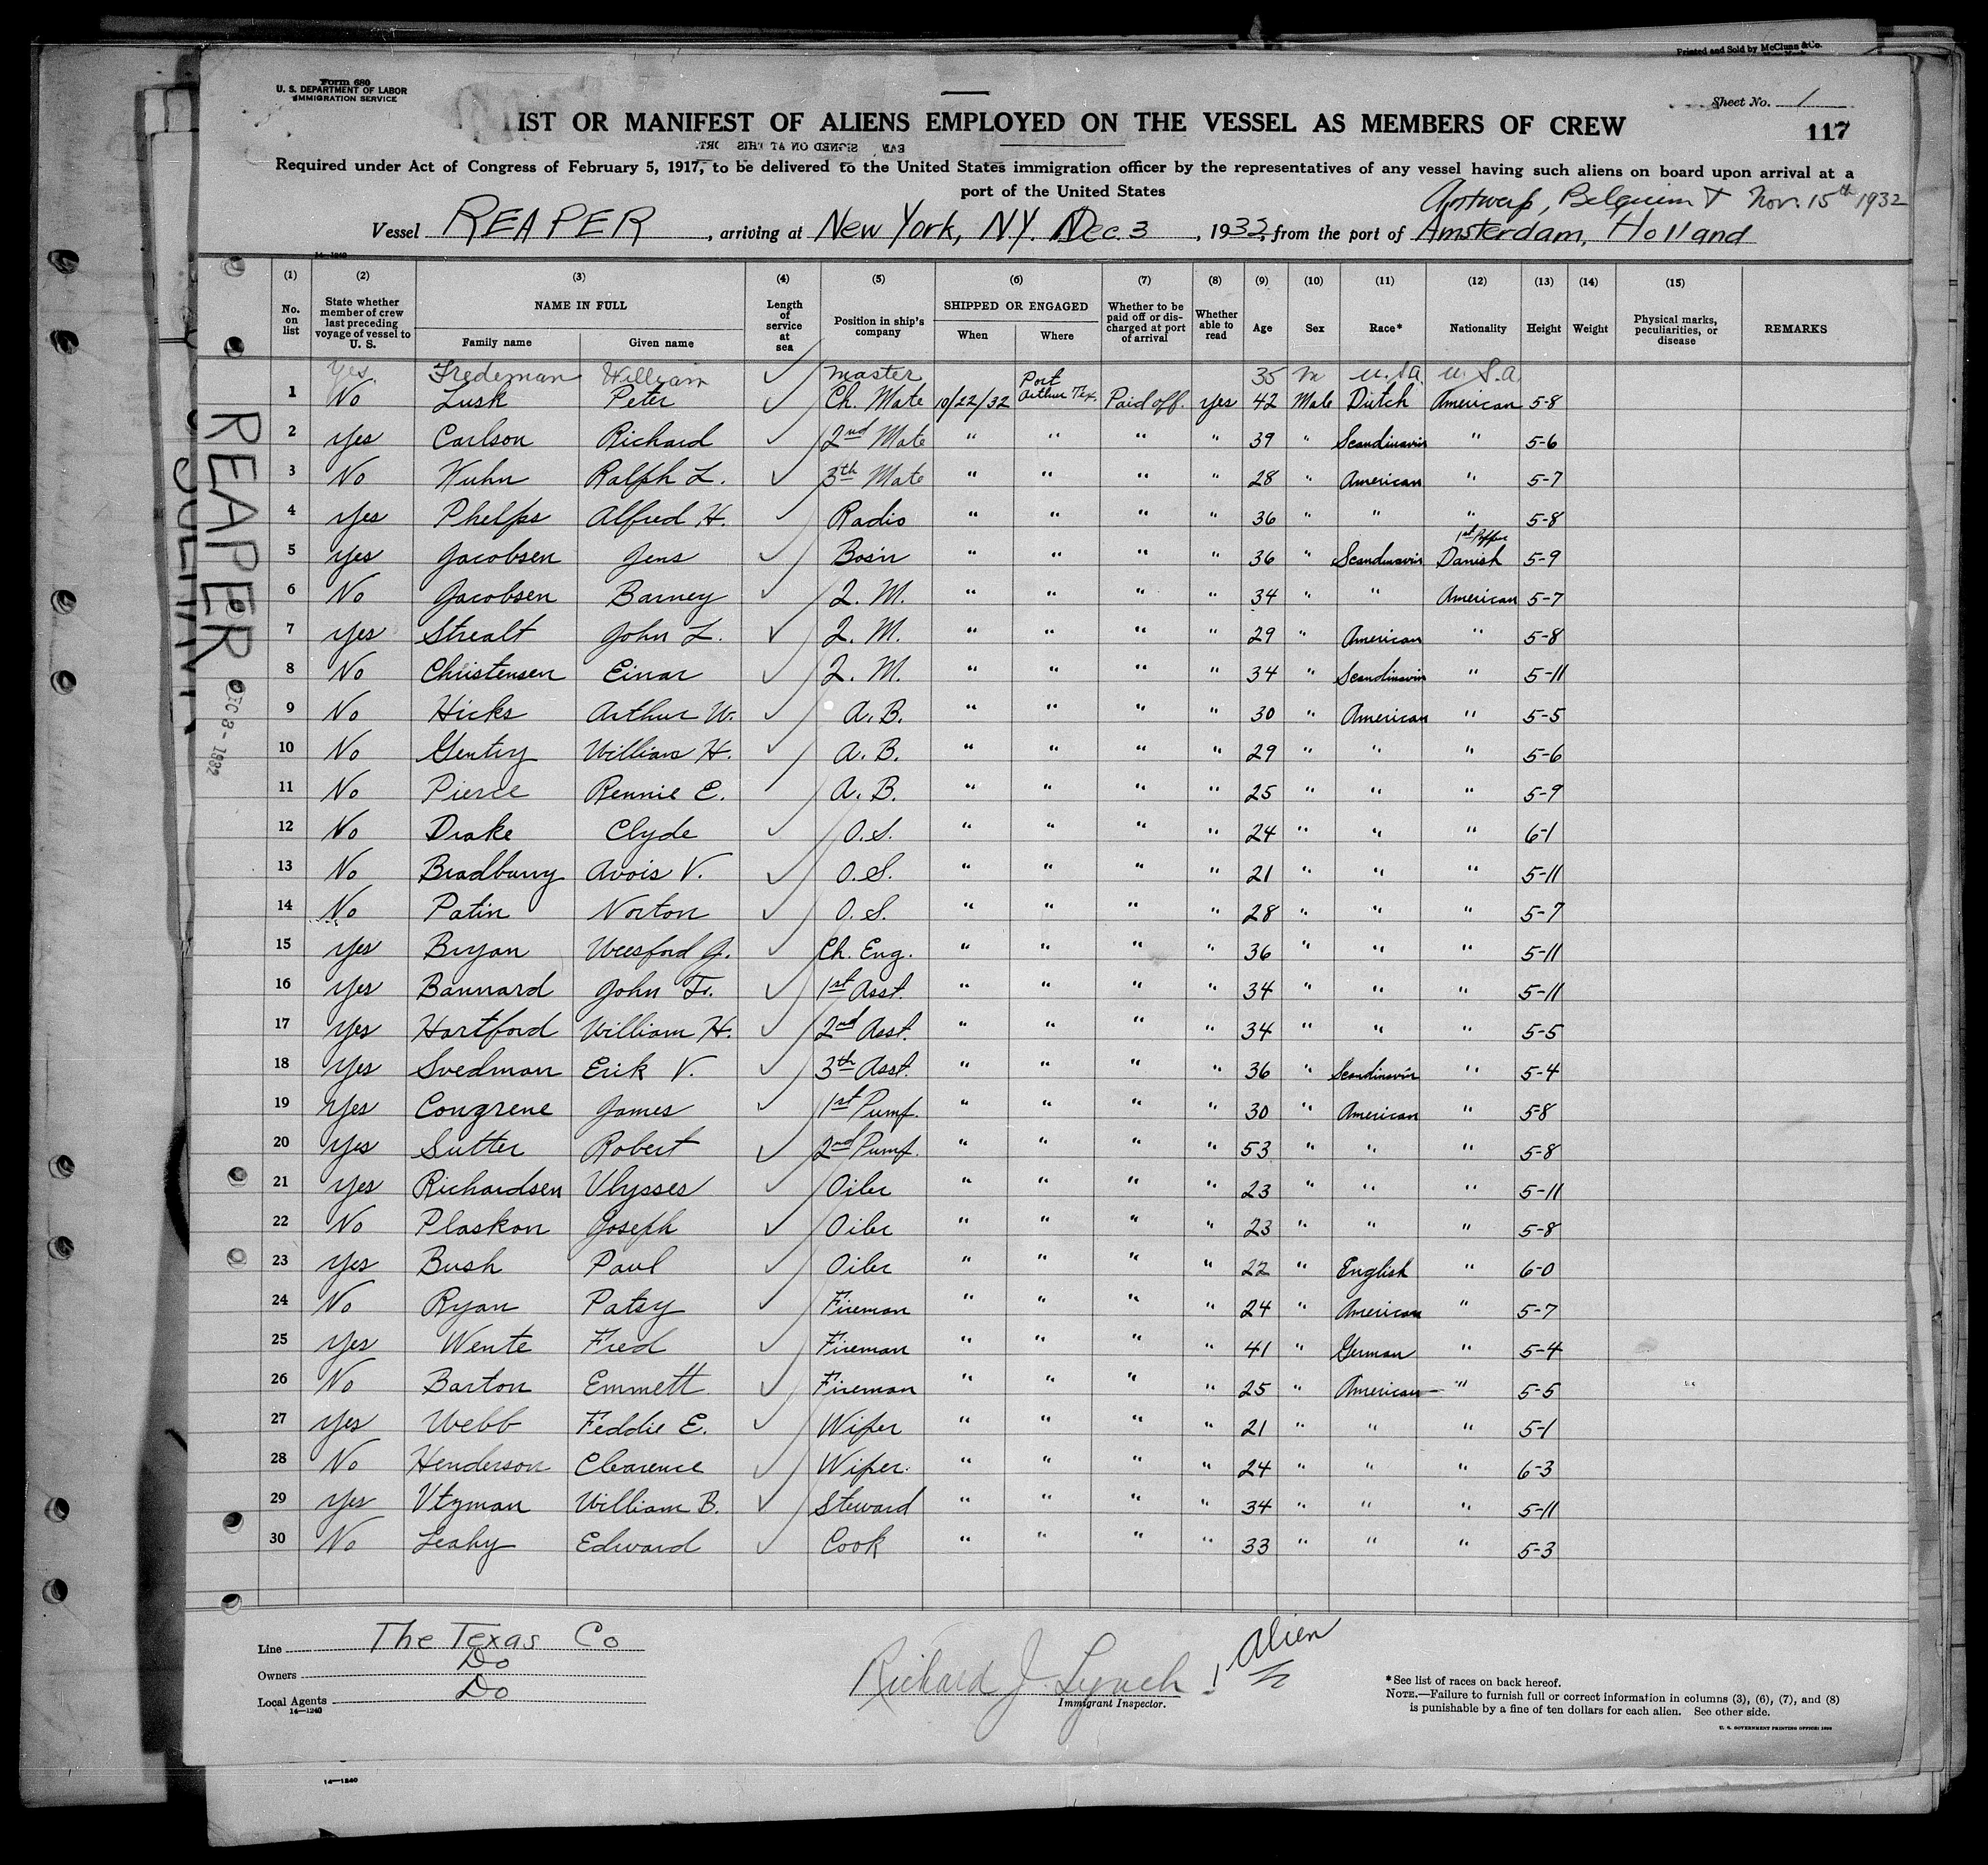 Printed and Sold by McClunn & Co.
Form 680
U. S. DEPARTMENT OF LABOR
IMMIGRATION SERVICE
Sheet No. 1
IST OR MANIFEST OF ALIENS EMPLOYED ON THE VESSEL AS MEMBERS OF CREW
117
Required under Act of Congress of February 5, 1917, to be delivered to the United States immigration officer by the representatives of any vessel having such aliens on board upon arrival at a
port of the United States
Antwerp, Belgium & Nov. 15th 1932
Vessel REAPER, arriving at New York, N.Y. Dec. 3, 1932, from the port of Amsterdam, Holland
14-1240
(1) (2) (3) (4) (5) (6) (7) (8) (9) (10) (11) (12) (13) (14) (15)
No. on list | State whether member of crew last preceding voyage of vessel to U. S. | NAME IN FULL | Family name | Given name | Length of service at sea | Position in ship's company | SHIPPED OR ENGAGED | When | Where | Whether to be paid off or discharged at port of arrival | Whether able to read | Age | Sex | Race* | Nationality | Height | Weight | Physical marks, peculiarities, or disease | REMARKS
Yes. Fredeman William ✓ Master 35 m U.S.A. U.S.A.
1 No Lusk Peter ✓ Ch. Mate 10/22/32 Port Arthur Tex. Paid off. yes 42 Male Dutch American 5-8
2 Yes Carlson Richard ✓ 2nd Mate " " " " 39 " Scandinavin " 5-6
3 No Kuhn Ralph L. ✓ 3th Mate " " " " 28 " American " 5-7
4 Yes Phelps Alfred H. ✓ Radio " " " " 36 " " " 5-8
5 Yes Jacobsen Jens ✓ Bosin " " " " 36 " Scandinavin 1st Papper Danish 5-9
6 No Jacobsen Barney ✓ Q. M. " " " " 34 " " American 5-7
7 Yes Strealt John L. ✓ Q. M. " " " " 29 " American " 5-8
8 No Christensen Einar ✓ Q. M. " " " " 34 " Scandinavin " 5-11
9 No Hicks Arthur W. ✓ A. B. " " " " 30 " American " 5-5
10 No Gentry William H. ✓ A. B. " " " " 29 " " " 5-6
11 No Pierce Rennie E. ✓ A. B. " " " " 25 " " " 5-9
12 No Drake Clyde ✓ O. S. " " " " 24 " " " 6-1
13 No Bradburry Avois V. ✓ O. S. " " " " 21 " " " 5-11
14 No Patin Norton ✓ O. S. " " " " 28 " " " 5-7
15 Yes Bryan Weesford J. ✓ Ch. Eng. " " " " 36 " " " 5-11
16 Yes Bannard John F. ✓ 1st Asst. " " " " 34 " " " 5-11
17 Yes Hartford William H. ✓ 2nd Asst. " " " " 34 " " " 5-5
18 Yes Svedman Erik V. ✓ 3th Asst. " " " " 36 " Scandinavin " 5-4
19 Yes Congrene James ✓ 1st Pump. " " " " 30 " American " 5-8
20 Yes Sutter Robert ✓ 2nd Pump. " " " " 53 " " " 5-8
21 Yes Richardsen Ulysses ✓ Oiler " " " " 23 " " " 5-11
22 No Plaskon Joseph ✓ Oiler " " " " 23 " " " 5-8
23 Yes Bush Paul ✓ Oiler " " " " 22 " English " 6-0
24 No Ryan Patsy ✓ Fireman " " " " 24 " American " 5-7
25 Yes Wente Fred ✓ Fireman " " " " 41 " German " 5-4
26 No Barton Emmett ✓ Fireman " " " " 25 " American " 5-5
27 Yes Webb Feddie E. ✓ Wiper " " " " 21 " " " 5-1
28 No Henderson Clearence ✓ Wiper. " " " " 24 " " " 6-3
29 Yes Utzman William B. ✓ Steward " " " " 34 " " " 5-11
30 No Leahy Edward ✓ Cook " " " " 33 " " " 5-3
REAPER
DEC 8 - 1932
Line The Texas Co
Owners Do
Local Agents Do
14-1240
Richard J. Lynch
Immigrant Inspector.
1 Alien
*See list of races on back hereof.
NOTE.—Failure to furnish full or correct information in columns (3), (6), (7), and (8)
is punishable by a fine of ten dollars for each alien. See other side.
U. S. GOVERNMENT PRINTING OFFICE:
14-1240